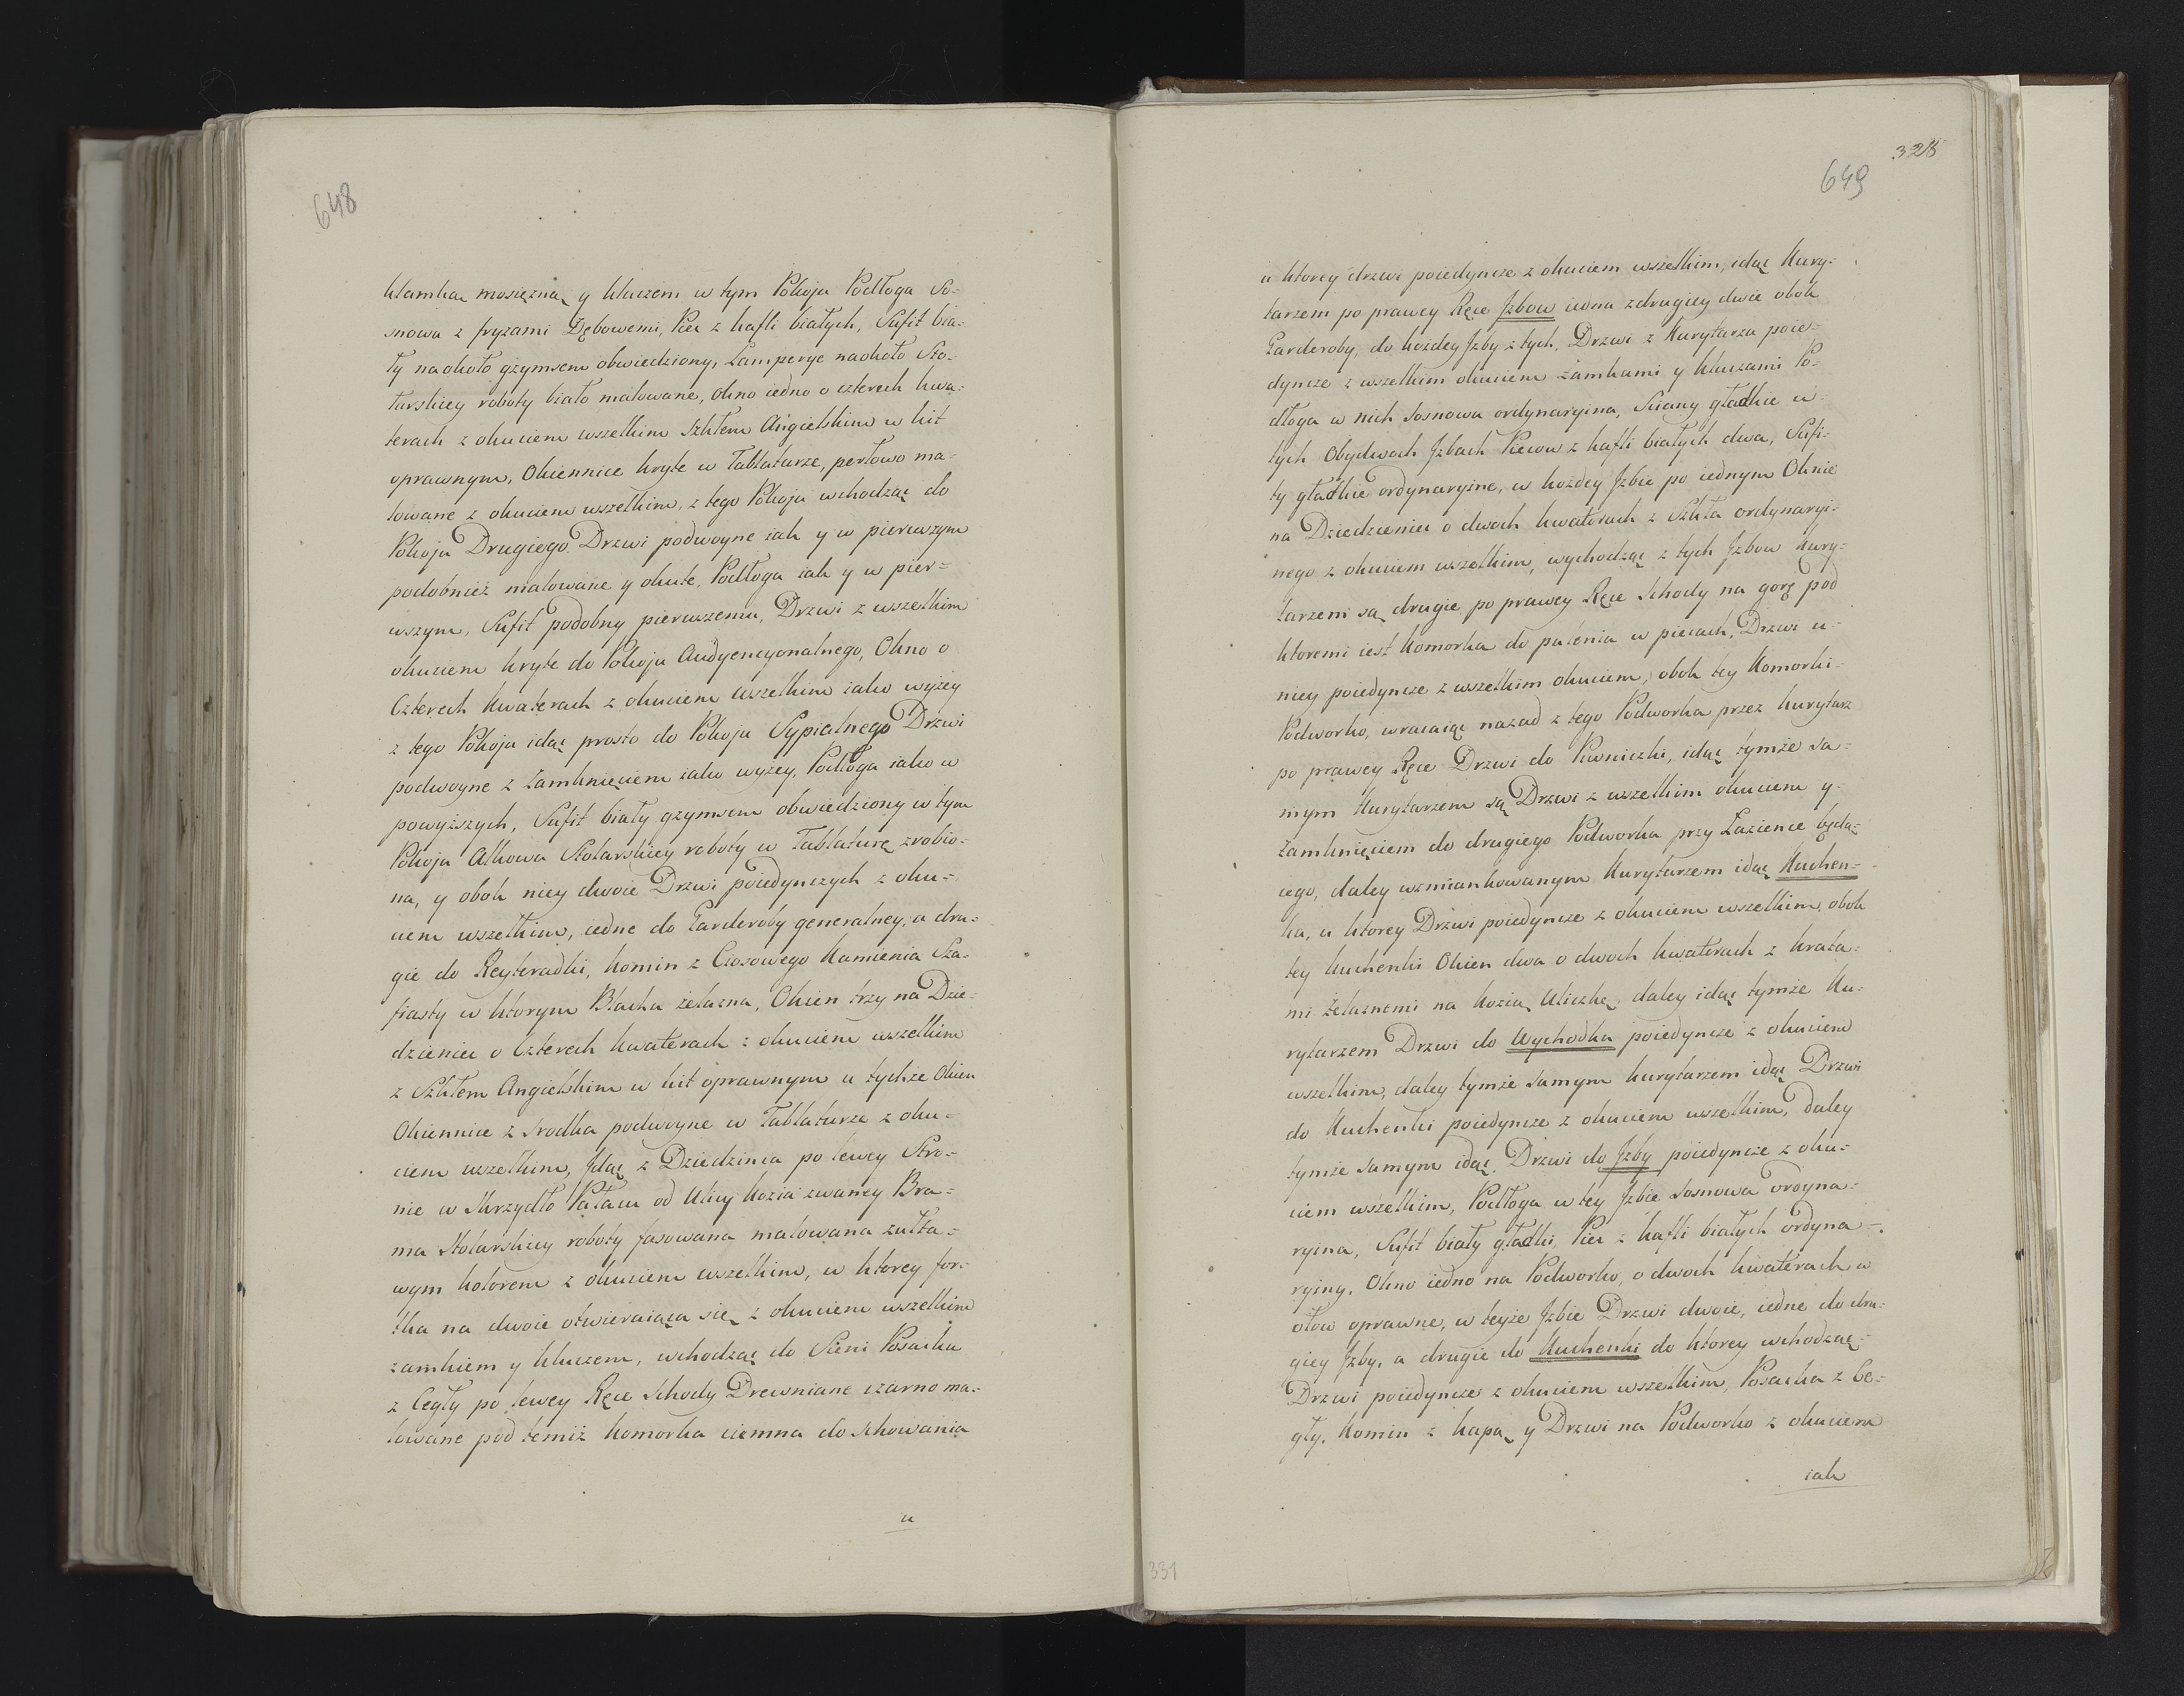 648
klamką mosiężną y kluczem w tym Pokoju Podłoga So-
snowa z fryzami Dębowemi, Piec z kafli białych, Sufit bia-
ły naokoło gzymsem obwiedziony, Lamperye naokoło Sto-
larskiey roboty biało malowane, okno iedno o czterech kwa-
terach z okuciem wszelkim Szkłem Angielskim w kit
oprawnym, Okiennice kryte w Tablaturze, perłowo ma-
lowane z okuciem wszelkim, z tego Pokoju wchodząc do
Pokoju Drugiego Drzwi podwoyne iak y w pierwszym
podobnież malowane y okute, Podłoga iak y w pier-
wszym, Sufit podobny pierwszemu, Drzwi z wszelkim
okuciem kryte do Pokoju Audyencyonalnego, Okno o
Czterech Kwaterach z okuciem wszelkim iako wyżey
z tego Pokoju idąc prosto do Pokoju Sypialnego Drzwi
podwoyne z Zamknięciem iako wyżey, Podłoga iako w
powyższych, Sufit biały gzymsem obwiedziony w tym
Pokoju Alkowa Stolarskiey roboty w Tablaturę zrobio-
na, y obok niey dwoie Drzwi poiedynczych z oku-
ciem wszelkim, iedne do Garderoby generalney, a dru-
gie do Reyteradki, komin z Ciosowego Kamienia Sza-
fiasty w ktorym Blacha żelazna, Okien trzy na Dzie-
dzieniec o Czterech kwaterach z okuciem wszelkim
z Szkłem Angielskim w kit oprawnym u tychże Okien
Okiennice z srodka podwoyne w Tablaturze z oku-
ciem wszelkim, Jdąc z Dziedzinca po lewey Stro-
nie w Skrzydło Pałacu od Ulicy kozia zwaney Bra-
ma Stolarskiey roboty fasowana malowana żułta-
wym kolorem z okuciem wszelkim, w ktorey for-
tka na dwoie otwieraiąca się z okuciem wszelkim
zamkiem y kluczem, wchodząc do Sieni Posadzka
z Cegły po lewey Ręce Schody Drewniane czarno ma-
lowane pod temiż komorka ciemna do schowania
u
328
649
u ktorey drzwi poiedyncze z okuciem wszelkim, idąc Kury-
tarzem po prawey Ręce Jzbow iedna z drugiey dwie obok
Garderoby, do każdey Jzby z tych, Drzwi z Kurytarza poie-
dyncze z wszelkim okuciem zamkami y kluczami Po-
dłoga w nich sosnowa ordynaryina, Sciany gładkie w
tych Obydwoch Jzbach Piecow z kafli białych dwa, Sufi-
ty gładkie ordynaryine, w każdey Jzbie po iednym Oknie
na Dziedzieniec o dwoch kwaterach z Szkła ordynaryi-
nego z okuciem wszelkim, wychodząc z tych Jzbow Kury-
tarzem są drugie po prawey Ręce Schody na gorę pod
ktoremi iest Komorka do palenia w piecach, Drzwi u
niey poiedyncze z wszelkim okuciem, obok tey Komorki
Podworko, wracaiąc nazad z tego Podworka przez kurytarz
po prawey Ręce Drzwi do Piwniczki, idąc tymże sa-
mym Kurytarzem są Drzwi z wszelkim okuciem y
Zamknięciem do drugiego Podworka przy Łazience będą-
cego, daley wzmiankowanym Kurytarzem idąc Kuchen-
ka, u ktorey Drzwi poiedyncze z okuciem wszelkim, obok
tey kuchenki Okien dwa o dwoch kwaterach z krata-
mi Żelaznemi na kozią Uliczkę, daley idąc tymże Ku-
rytarzem Drzwi do Wychodka poiedyncze z okuciem
wszelkim, daley tymże samym kurytarzem idąc Drzwi
do Kuchenki poiedyncze z okuciem wszelkim, daley
tymże samym idąc, Drzwi do Jzby poiedyncze z oku-
ciem wszelkim, Podłoga w tey Jzbie sosnowa ordyna-
ryina, Sufit biały gładki, Piec z kafli białych ordyna-
ryiny, Okno iedno na Podworko, o dwoch kwaterach w
ołow oprawne, w teyże Jzbie Drzwi dwoie, iedne do dru-
giey Jzby, a drugie do Kuchenki do ktorey wchodząc
Drzwi poiedyncze z okuciem wszelkim, Posadzka z Ce-
gły, Komin z kapą y Drzwi na Podworko z okuciem
iak
331